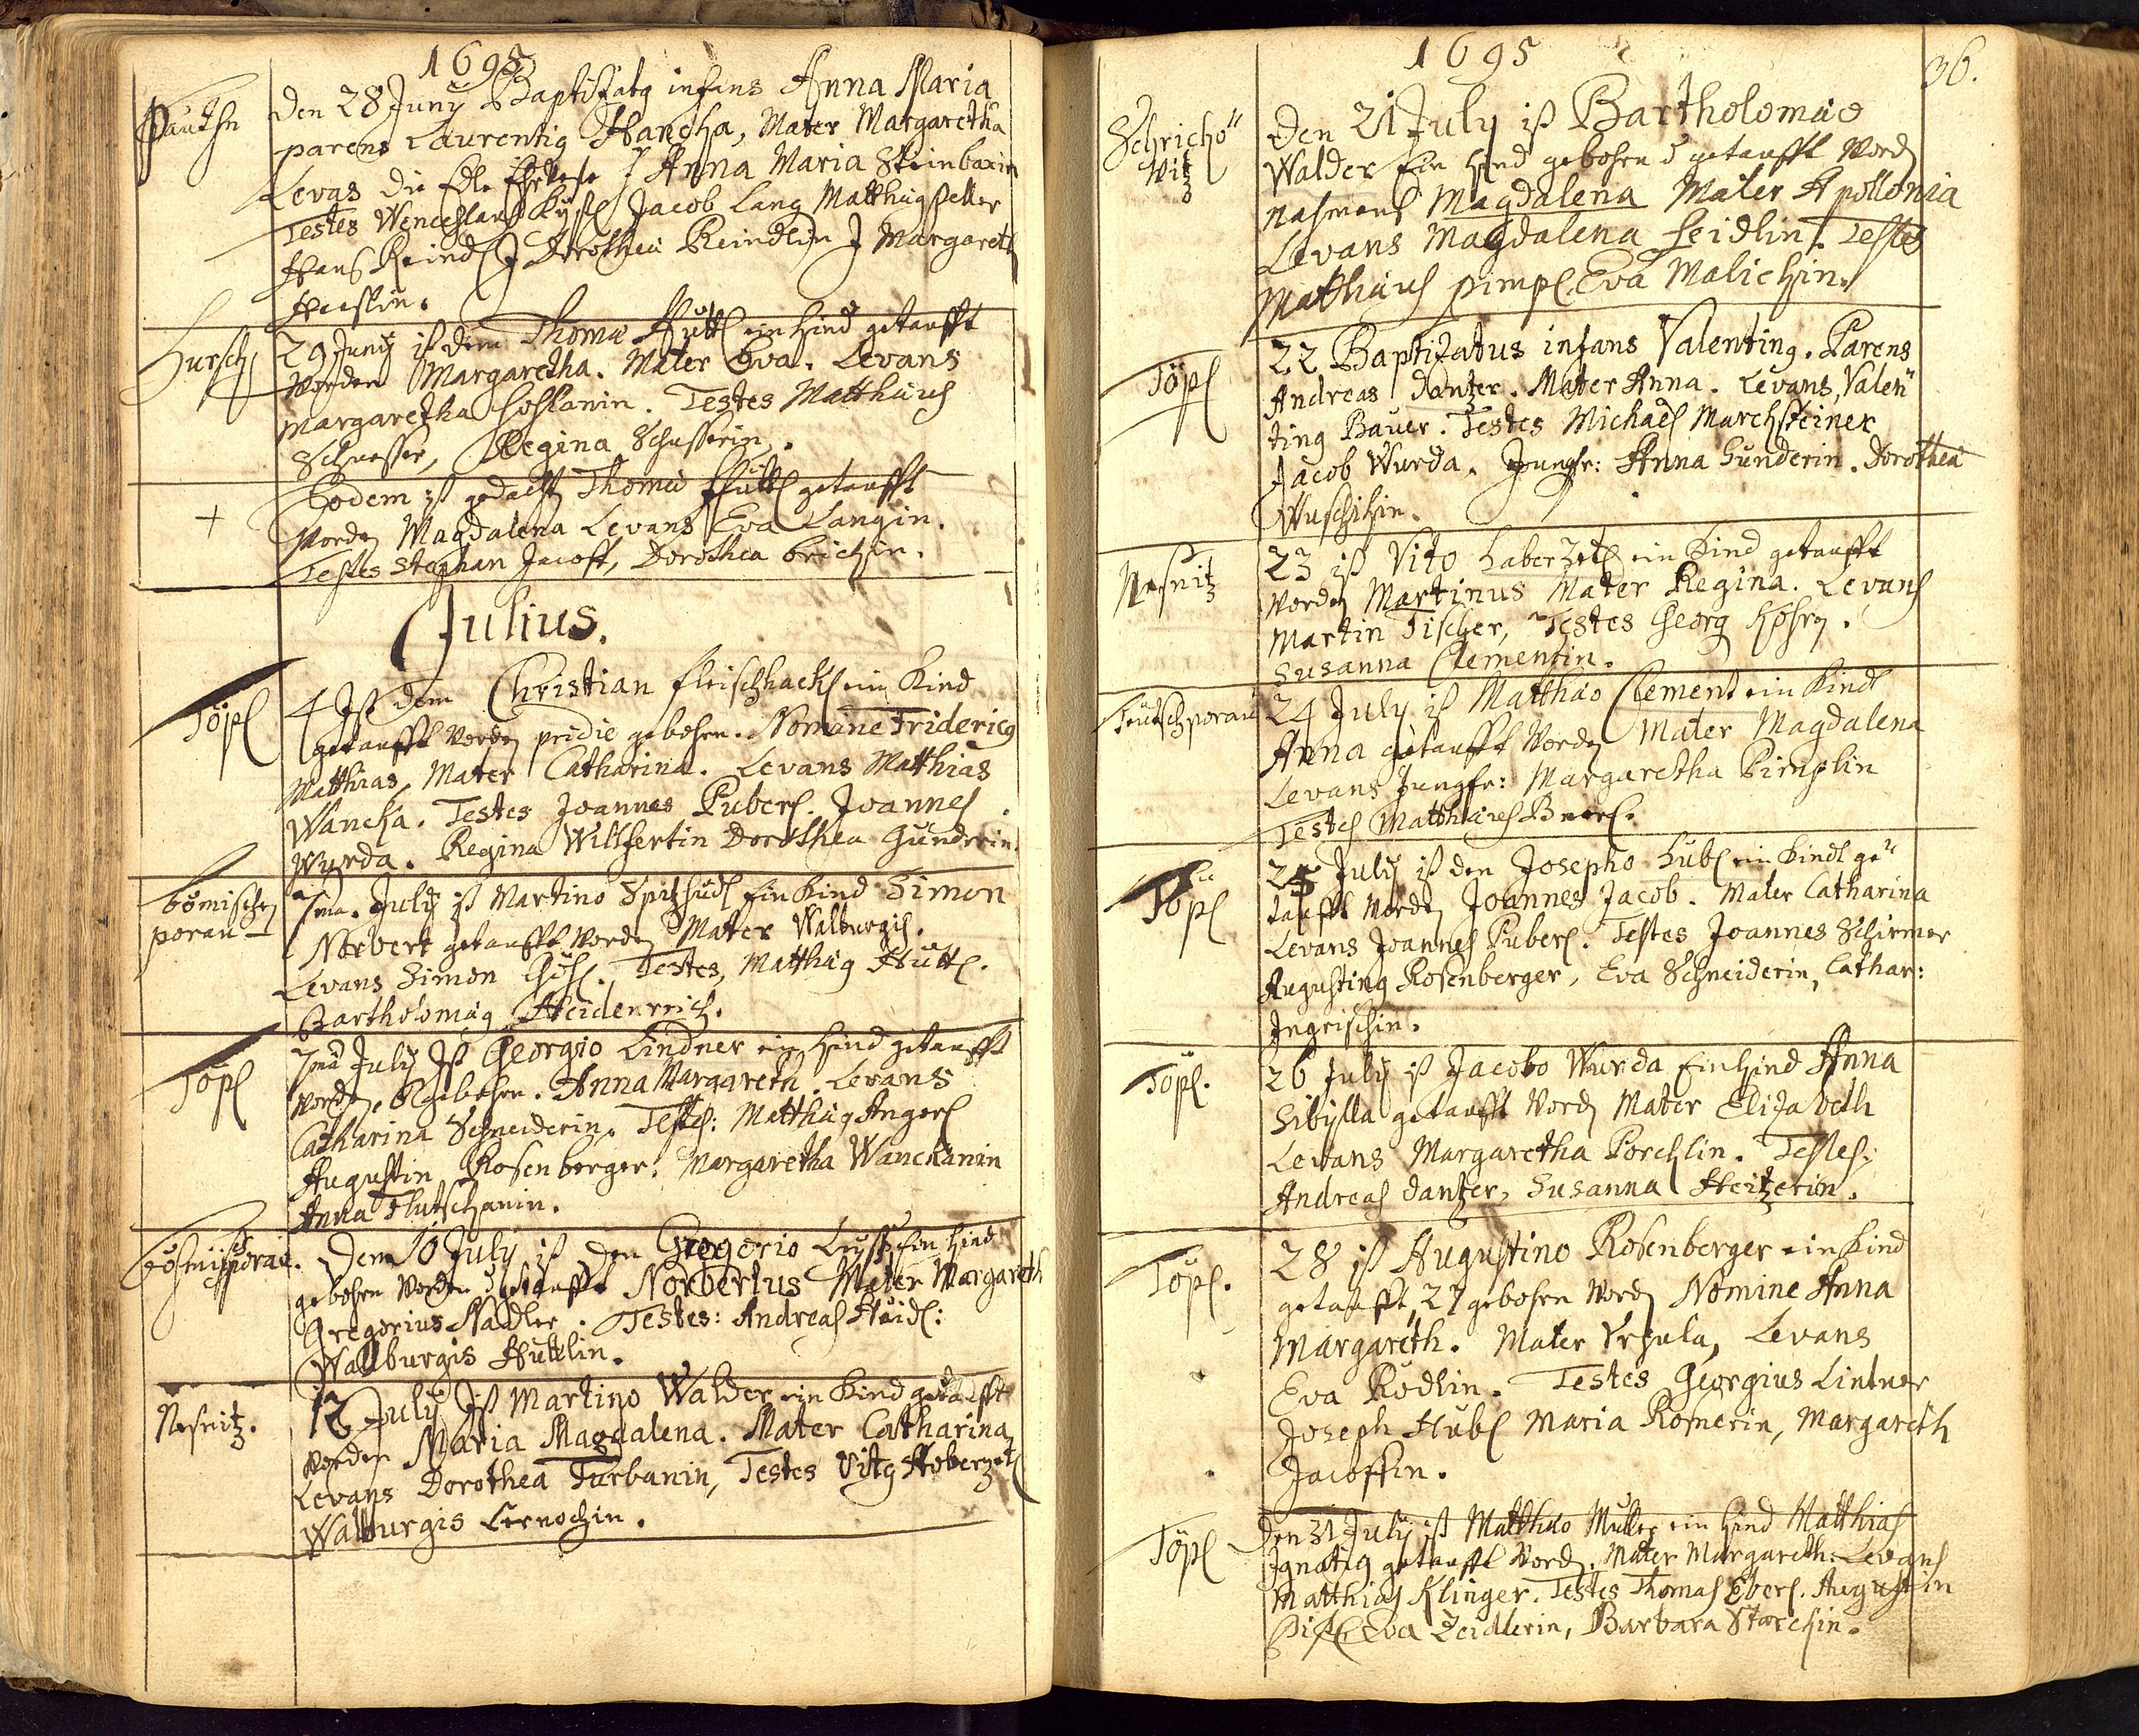 1695
Pauthn
Den 28 Junÿ Baptizatq infans Anna Maria
parens Laurentiq Hancka, Mater Margaretha
Levas die Edle J Anna Maria Steinbaxin
Testes Wenceslaus Jacob Lang Matthiaq
Hans Reindl J Dorothea Reindlin J Margareth
Hursch
29 Junÿ ist dem Thomæ Hüttl ein Kind getaufft
worden Margaretha. Mater Eva. Levans
Margaretha Testes Matthæus
Regina Schusserin.
+
Eodem ist gedacht Thomæ Hüttl getaufft
worden Magdalena Levans Eva Langin.
Testes Stephan Jacoff, Dorothea
Julius.
Töpl
4 Ist dem Christian fleischhackl ein Kind
getaufft worden pridie gebohrn. Nomine Fridericq
Matthias, Mater Catharina. Levans Matthias
Wancka. Testes Joannes Puberl. Joannes
Wurda. Regina Willfertin Dorothea Gunderin.
bömischen
porau
July ist Martino Spitzhüdl Ein Kind Simon
Norbert getaufft worden Mater Walburgis.
Levans Simon Testes, Matthiaq Hüttl.
Bartholomæq Heidenreich.
Töpl
7ma July Ist Georgio Lindner ein Kind getaufft
worden, 6 gebohrn. Anna Margareth. Levans
Catharina Schneiderin. Testes: Matthiaq Angerl
Augustin Rosenberger. Margaretha Wanckanin
Anna Flutschanin.
porau.
Dem 10 July ist den Gregorio ein Kind
gebohrn worden getaufft Norbertus Mater Margareth
Gregorius Nadler. Testes: Andreas Haidl:
Wallburgis Hüttlin.
Nesnitz.
12 July Ist Martino Walder ein Kind getaufft
worden Maria Magdalena. Mater Catharina
Levans Dorothea Turbanin, Testes Vitq Haberzetl
Walburgis Cernochin.
1695
36.
Schricho"
witz
Den 21 July ist Bartholomæo
Walder Ein Kind gebohrn getaufft word
nahmens Magdalena Mater Apollonia
Levans Magdalena Seidlin. Testes
Matthæus pimpl. Eva Malichin.
Töpl
22 Baptizatus infans Valentinq. Parens
Andreas Dantzer. Mater Anna. Levans, Valen"
tinq Bauer. Testes Michael Marchsteiner
Jacob Wurda. Jungfr: Anna Gunderin. Dorothea
Wuschihin.
Nesnitz
23 ist Vito Haberzetl ein Kind getaufft
worden Martinus Mater Regina. Levans
Martin Fischer, Testes Georg
Susanna Clementin.
Teütschporau
24 July ist Matthæo Clement ein Kindl
Anna getaufft worden Mater Magdalena
Levans Jungfr: Margaretha Pimplin
Testes Matthæus
Töpl
25 July ist den Josepho Hübl ein Kindl ge"
taufft worden Joannes Jacob. Mater Catharina
Levans Joannes Puberl. Testes Joannes Schirmer
Augustinq Rosenberger, Eva Schneiderin, Cathar:
Ingrischin.
Töpl.
26 July ist Jacobo Wurda Ein Kind Anna
Sibylla getaufft word Mater Elizabeth
Levans Margaretha Porchlin. Testes:
Andreas Dantzer, Susanna Heitzerin.
Töpl.
28 ist Augustino Rosenberger ein Kind
getaufft, 27 gebohrn word Nomine Anna
Margareth. Mater Vrzula, Levans
Eva Rödlin. Testes Georgius Lintner
Joseph Hübl Maria Romerin, Margareth
Jacoffin.
Töpl
Den 31 July ist Matthæo Müller ein Kind Matthias
Ignatiq getaufft word. Mater Margareth: Levans
Matthias Klinger. Testes Thomas Eberl. Augustin
Eva Zeidlerin, Barbara Starckin.